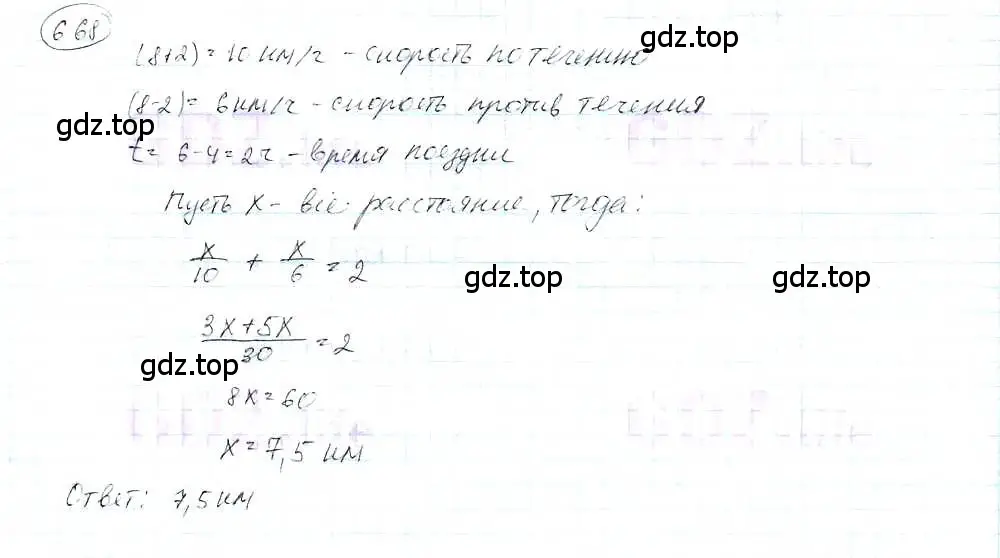 668
(8+2)=10 км/ч - скорость по течению
(8-2)= 6 км/ч - скорость против течения
gdz.top
gdz.top
t= 6-4=2ч - время поездки
Пусть x - всё расстояние, тогда:
x/10 + x/6 = 2
gdz.top
gdz.top
(3x+5x)/30 = 2
gdz.top
8x=60
x=7,5 км
Ответ: 7,5 км